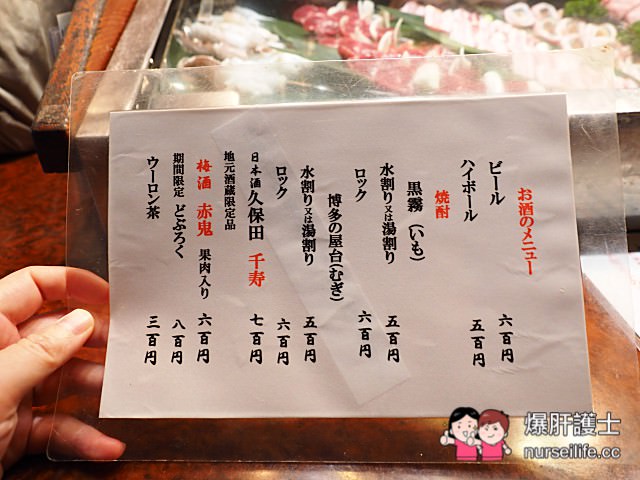 お酒のメニュー
ビール 六百円
ハイボール 五百円
焼酎
黒霧(いも)
水割り又は湯割り 五百円
ロック 六百円
博多の屋台(むぎ)
水割り又は湯割り 五百円
ロック 六百円
日本酒 久保田 千寿 七百円
地元酒蔵限定品
梅酒 赤鬼 果肉入り 六百円
期間限定 どぶろく 八百円
ウーロン茶 三百円
爆肝護士
nurseilife.cc